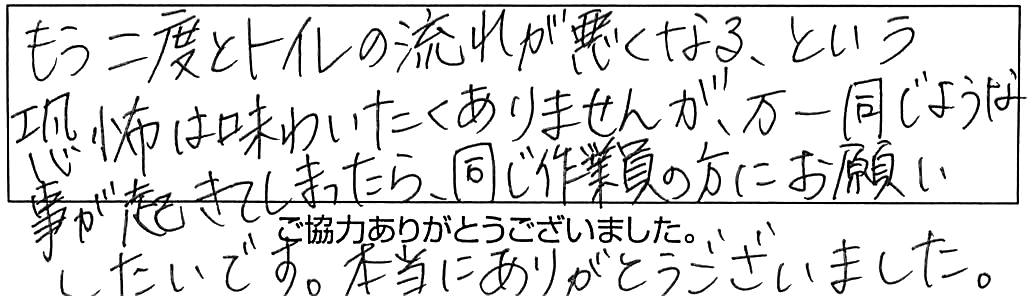 もう二度とトイレの流れが悪くなる、という
恐怖は味わいたくありませんが、万一同じような
事が起きてしまったら、同じ作業員の方にお願い
ご協力ありがとうございました。
したいです。本当にありがとうございました。